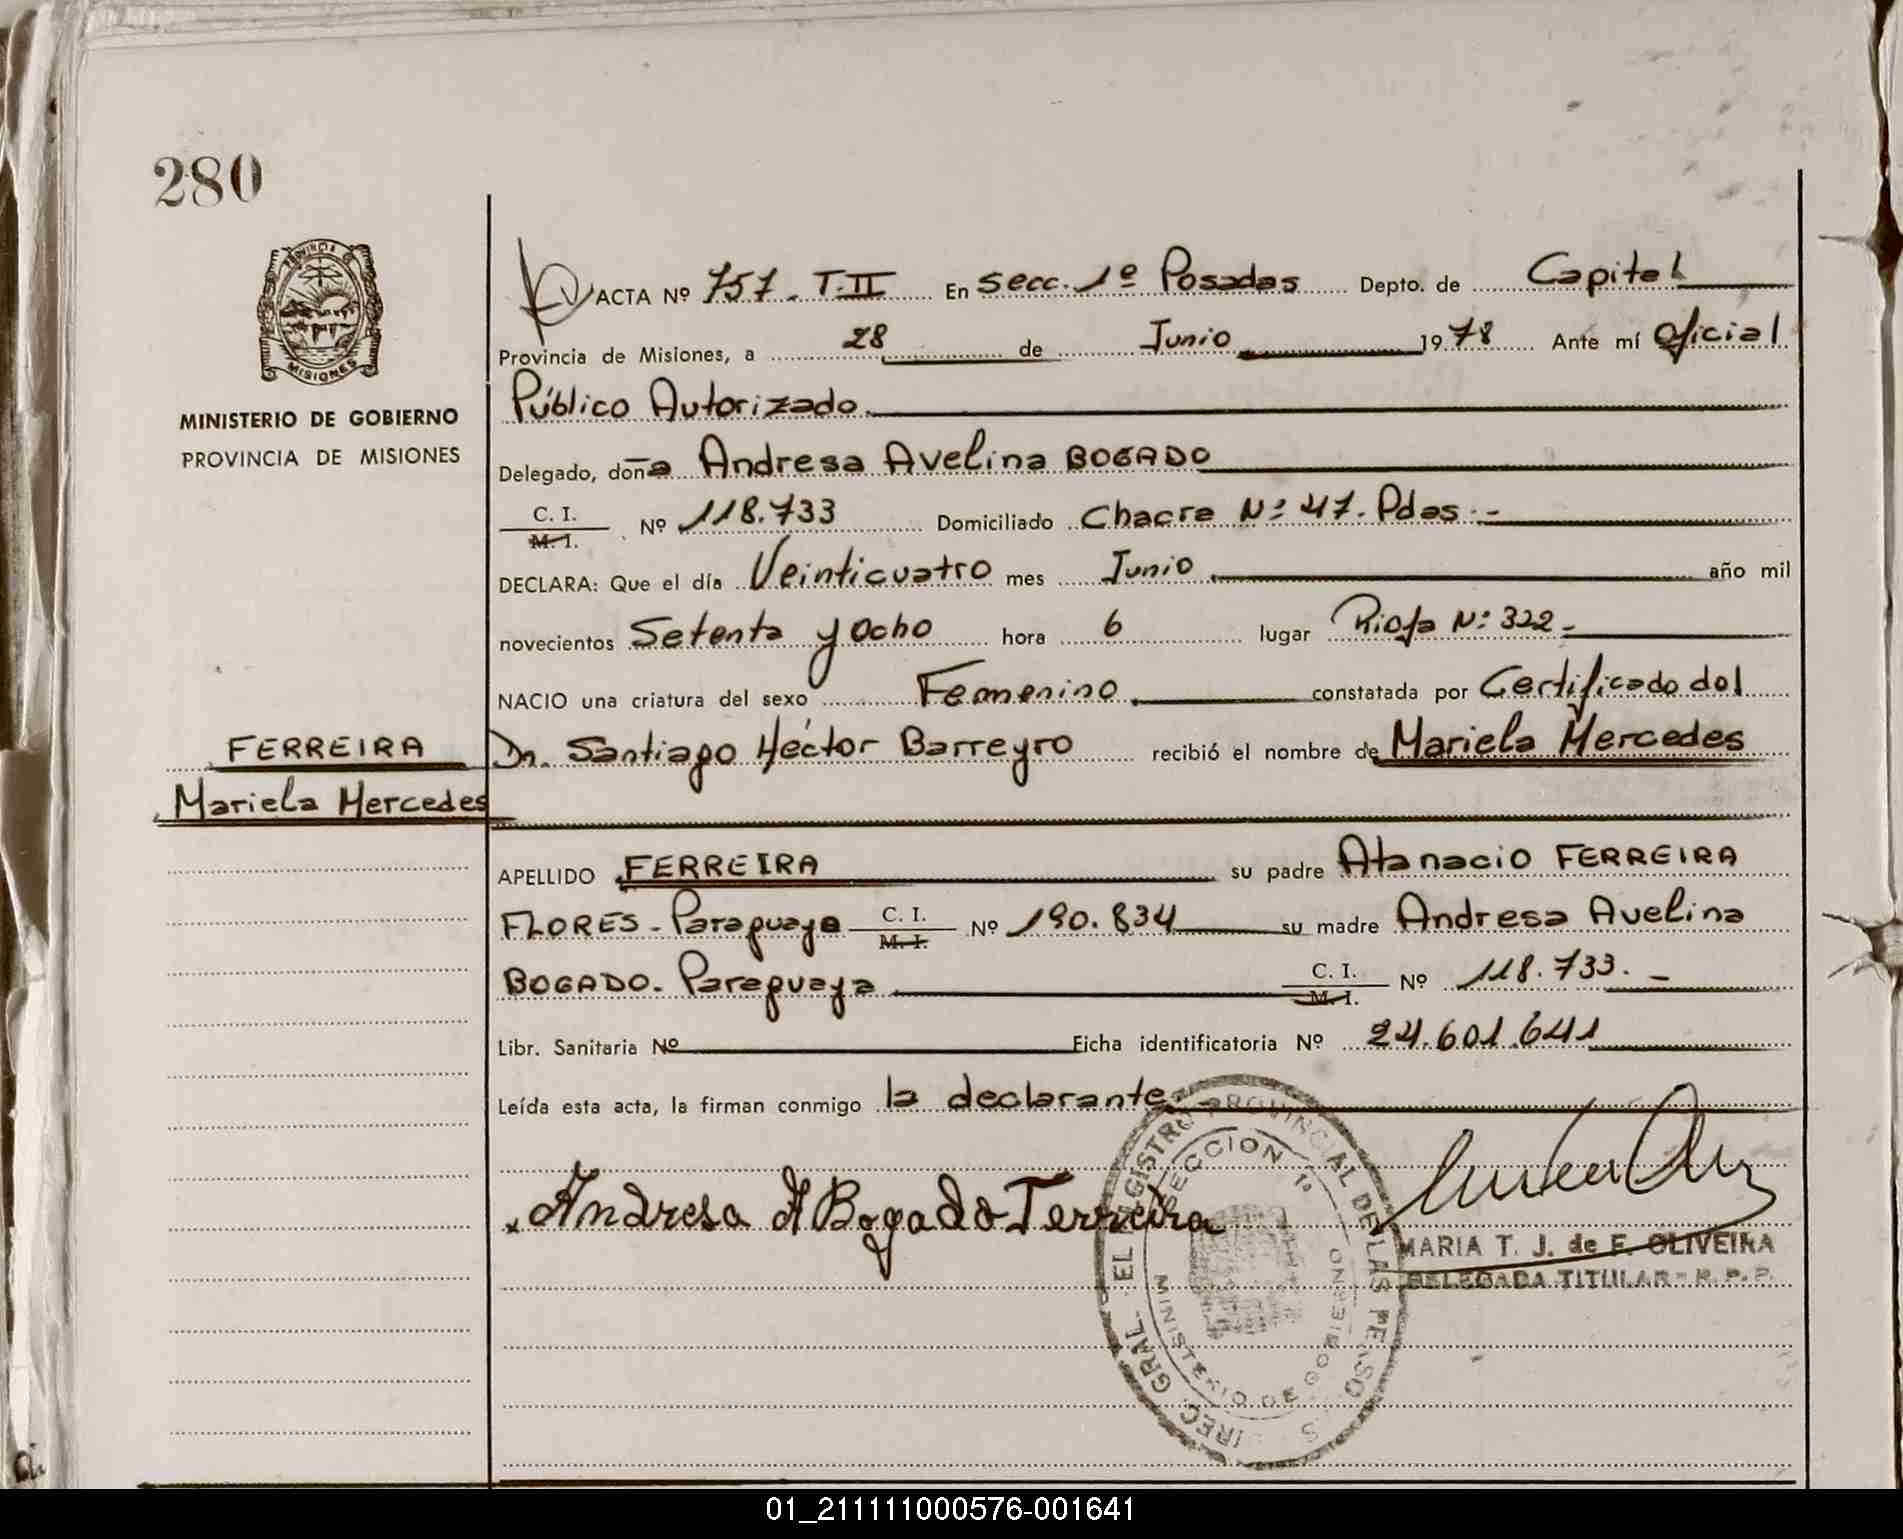 280
PROVINCIA
MISIONES
MINISTERIO DE GOBIERNO
PROVINCIA DE MISIONES
ACTA Nº 757. T.II En Secc. 1º Posadas Depto. de Capital
Provincia de Misiones, a 28 de Junio 1978 Ante mí Oficial
Público Autorizado
Delegado, doña Andresa Avelina BOGADO
C. I.
M. I. Nº 118.733 Domiciliado Chacra Nº 47. Pdas.-
DECLARA: Que el día Veinticuatro mes Junio año mil
novecientos Setenta y Ocho hora 6 lugar Rioja Nº 322-
NACIO una criatura del sexo Femenino constatada por Certificado del
FERREIRA Dr. Santiago Héctor Barreyro recibió el nombre de Mariela Mercedes
Mariela Mercedes
APELLIDO FERREIRA su padre Atanacio FERREIRA
FLORES - Paraguaya C. I. M. I. Nº 190.834 su madre Andresa Avelina
BOGADO - Paraguaya C. I. M. I. Nº 118.733. -
Libr. Sanitaria Nº Ficha identificatoria Nº 24.601.641
Leída esta acta, la firman conmigo la declarante
Andresa A Bogado Ferreira
MARIA T. J. de F. OLIVEIRA
DELEGADA TITULAR - R. P. P.
DIREC. GRAL. DEL REGISTRO PROVINCIAL DE LAS PERSONAS
SECCION 1ª
MINISTERIO DE GOBIERNO
01_211111000576-001641